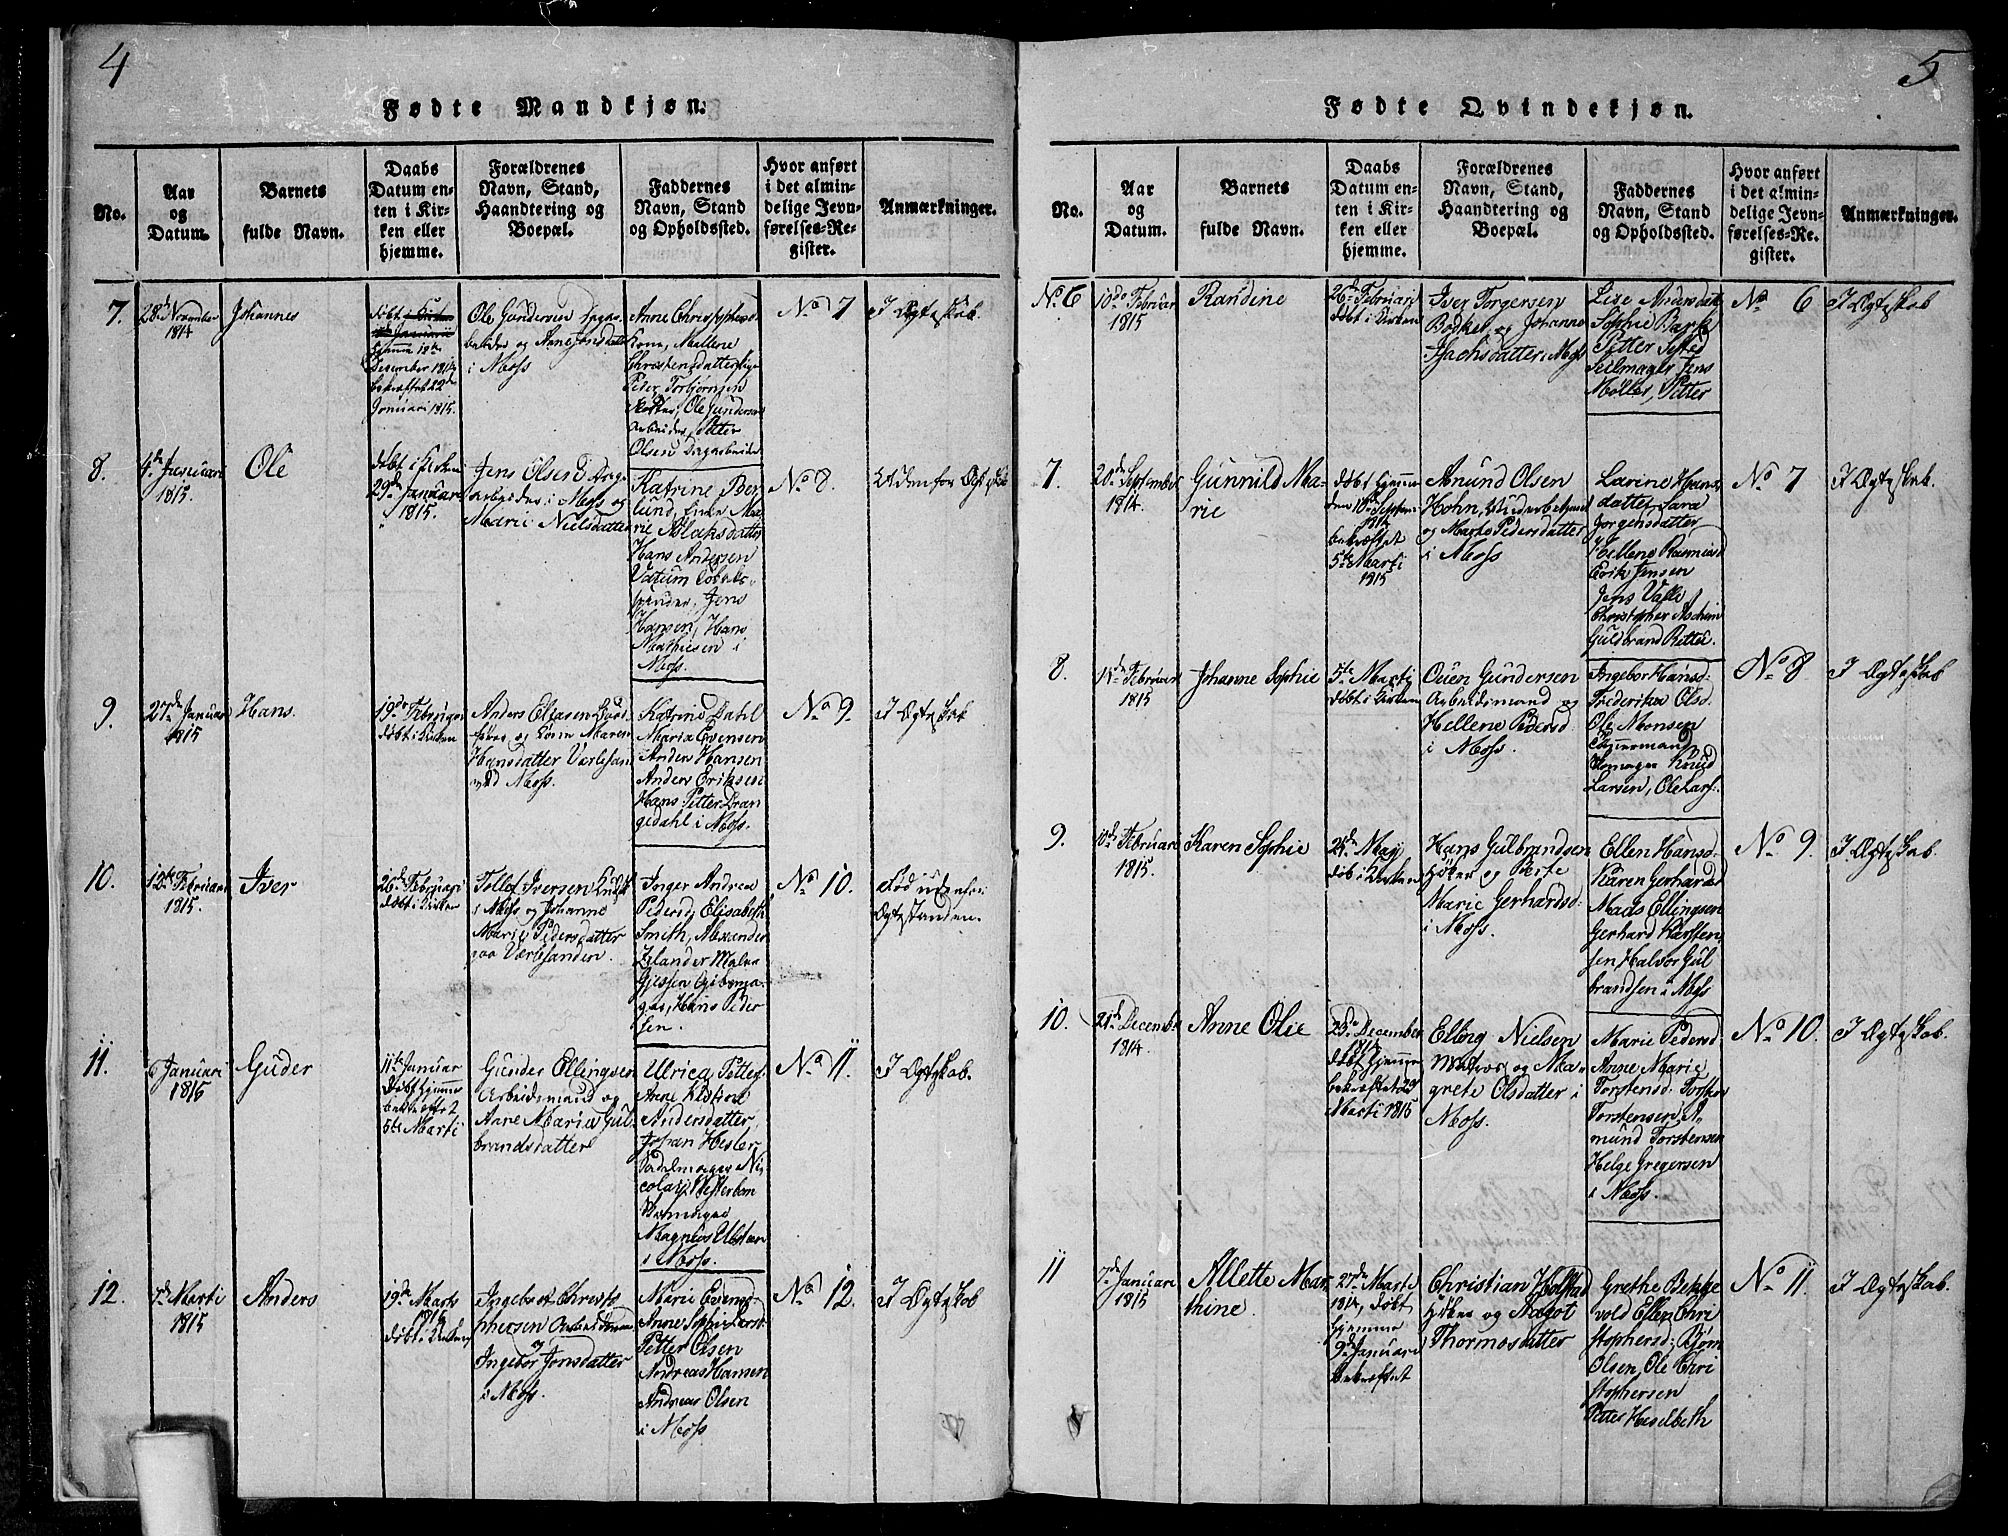 4
Fødte Mandkjøn.
No.
Aar
og
Datum.
Barnets
fulde Navn.
Daabs
Datum en-
ten i Kir-
ken eller
hjemme.
Forældrenes
Navn, Stand,
Haandtering og
Boepæl.
Faddernes
Navn, Stand
og Opholdssted.
Hvor anført
i det almin-
delige Jevn-
førelses-Re-
gister.
Anmærkninger.
7.
28de November
1814
Johannes
December 1814
bekræftet 22de
Januari 1815.
Ole Gundersen
og Anne Jonsdatter
i Moss
Anne Christophersd.
Kone, Mallene
Christensdatter
Peder Torbjørnsen
Ole Gundersen
Arbeider, Petter
Olsen Dagarbeider
No 7
I Ægteskab.
8.
4de Januari
1815.
Ole
døbt i Kirken
29de Januari
1815.
Jens Olsen
arbeider i Moss og
Marie Nielsdatter
Katrine Ber
lund, Ma
rie Aslaksdatter
Hans Andersen
Vatum
Jens
Hansen, Hans
Mathiesen i
Moss.
No 8.
Udenfor Ægtesk
9.
27de Januar
1815
Hans.
19de Februar
døbt i Kirken
Anders Eliasen
og Maren
Hansdatter Værlesan
ved Moss.
Katrine Dahl
Maria Evensen
Anders Hansen
Anders Eriksen
Hans Petter Dran
gedahl i Moss.
No 9.
I Ægtesk
10.
12te Februari
1815.
Iver
26de Februari
døbt i Kirken
Tollef Iversen
i Moss og Johanne
Marie Pedersdatter
paa Værlesanden.
Inger Andrea
Pedersd, Elisabeth
Smith, Alexander
Zelander Maler
Gjessen
Hans Peder
sen.
No 10.
Fød udenfor
Ægtestanden.
11.
6 Januari
1815
Guder
11te Januar
Døbt hjemme
5te Marti
Gunder Ellingsen
Arbeidsmand og
Anne Maria Gul
brandsdatter
Ulrica Petter
Anne Kistine
Andersdatter,
Johan Hesler
Sadelmager Ni
colaij Westerbom
Magnus
i Moss.
No 11.
I Ægteskab.
12.
7de Marti
1815
Anders
19de Marts
døbt i Kirken
Ingebret Christo
phersen
og
Ingebor Jonsdatter
i Moss.
Marie Evensd.
Anne Sophie
Petter Olsen
Andreas Hansen
Andreas Olsen
i Moss.
No 12.
I Ægteskab
5
Fødte Qvindekjøn.
No.
Aar
og
Datum.
Barnets
fulde Navn.
Daabs
Datum en-
ten i Kir-
ken eller
hjemme.
Forældrenes
Navn, Stand,
Haandtering og
Boepæl.
Faddernes
Navn, Stand
og Opholdssted.
Hvor anført
i det almin-
delige Jevn-
førelses-Re-
gister.
Anmærkninger.
No. 6
10de Februar
1815
Randine
26de Februari
døbt i Kirken
Iver Torgersen
Bødker og Johanne
Isachsdatter i Moss
Lise Andersdatt
Sophie Bark
Petter
Seilmager Jens
Møller, Petter
No 6
I Ægteskab
7.
20de September
1814.
Gunnild Ma-
rie
døbt hjemme
bekræftet
5te Marti
1815
Anund Olsen
Hohn,
og Marte Pedersdatter
i Moss
Larine Hans
datter Sara
Jørgensdatter
Hellene Rasmusd
Erik Jensen
Jens Valle
Christopher
Guldbrand Petter.
No 7
I Ægteskab.
8.
14de Februar
1815
Johanne Sophie
5te Marti
døbt i Kirken
Ouen Gundersen
Arbeidsmand og
Hellene Pedersd
i Moss.
Ingebor Hansd.
Frederika Olsd.
Ole Monsen
Knud
Larsen, Ole Lars.
No 8
I Ægteskab
9.
10de Februari
1815.
Karen Sophie
Døbt i Kirken
Hans Gulbrandsen
Høker og Berte
Marie Gerhardsd.
i Moss.
Ellen Hansd.
Karen Gerhardsd
Mads Ellingsen
Gerhard Karsten
sen, Halvor Gul
brandsen i Moss
No 9.
I Ægteskab.
10.
21de December
1814.
Anne Olie
25de December
1814
døbt hjemme
bekræftet 27
Marti 1815
Elling Nielsen
Matros og Mar
grete Olsdatter i
Moss.
Marie Pedersd
Anne Marie
Torstensd. Torsten
Torstensen A
mund Torstensen
Helge Gregersen
i Moss.
No 10.
I Ægteskab.
11
7de Januari
1815
Allette Mar
thine.
27de Marti
døbt
hjemme
9de Januari
bekræftet
Christian Holstad
Høker og Magot
Thormosdatter
Grethe Bække
vold Ellen Chri
stophersd. Bjørn
Olsen, Ole Chri
stophersen
Peter Heselbeth
No 11.
I Ægteskab.